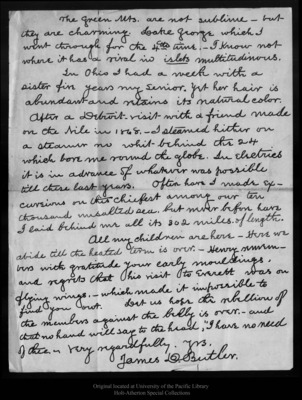 The Green Mts. are not sublime - but
they are charming. Lake George which I
went through for the 4th time. - I know not
where it has a rival in islets multitudinous.
In Ohio I had a week with a
sister five years my senior. Yet her hair is
abundant and retains its natural color.
After a Detroit visit with a friend made
on the Nile in 1868. - I steamed hither on
a steamer no whit behind the 24
which bore me round the globe. In electrics
it is in advance of whatever was possible
till these last years. Often have I made ex-
cursions on this chiefest among our ten
thousand unsalted seas, but never before have
I laid behind me all its 302 miles of length.
All my children are here - Here we
abide till the heated term is over. - Henry
with gratitude your early
and regrets that his visit to Everett was on
flying wings. - which made it impossible to
find you out. Let us hope the rebellion of
the members against the belly is over. - and
that no hand will say to the head, "I have no need
of thee." Very regardfully. Yrs.
James D. Butler.
Original located at University of the Pacific Library
Holt-Atherton Special Collections